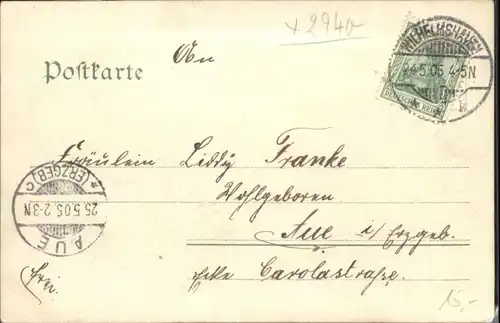 x 2940
An
Postkarte
WILHELMSHAVEN
24.5.05. 4-5N
DEUTSCHES REICH
Fräulein Liddy Franke
Wohlgeboren
Aue i/ Erzgeb.
Ecke Carolastraße.
(ERZGEB.) C
25.5.05. 2-3N
AUE
15,-